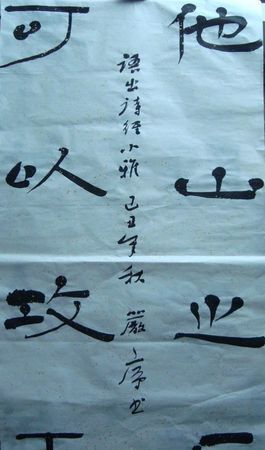 他山之
可以攻
語出詩經小雅 己丑年秋 嚴序书